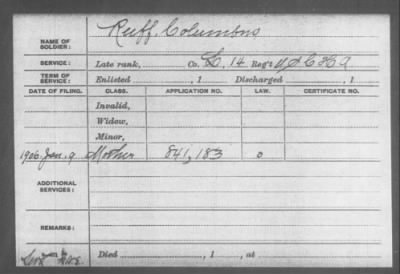 Ruff, Columbus
NAME OF SOLDIER:
SERVICE: Late rank, Co. L, 14 Reg't U.S.C.H.A
TERM OF SERVICE: Enlisted , 1 Discharged , 1
DATE OF FILING. CLASS. APPLICATION NO. LAW. CERTIFICATE NO.
Invalid,
Widow,
Minor,
1906 Jan. 9 Mother 841,183 o
ADDITIONAL SERVICES:
REMARKS:
Died , 1 , at